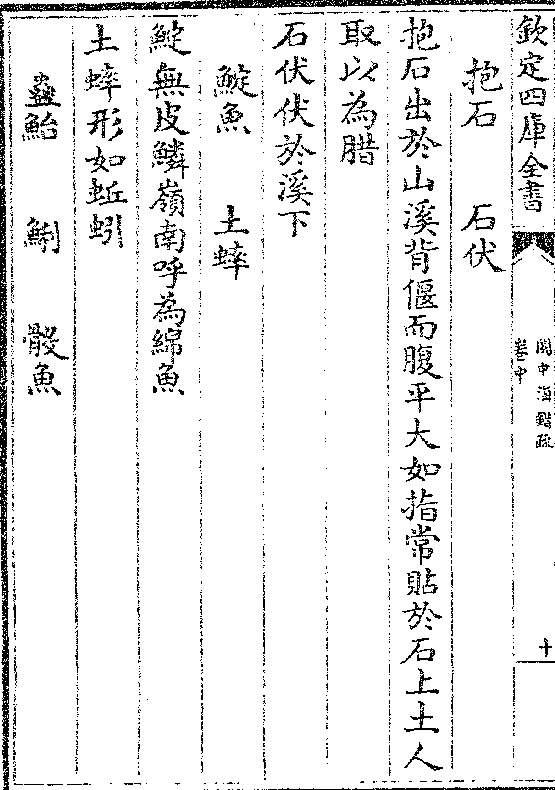 欽定四庫全書
閩中海錯疏
卷中
十
抱石 石伏
抱石出於山溪背偃而腹平大如指常貼於石上土人
取以為腊
石伏伏於溪下
魚 土蜶
無皮鱗嶺南呼為綿魚
土蜶形如蚯蚓
鮐 鯏 魚